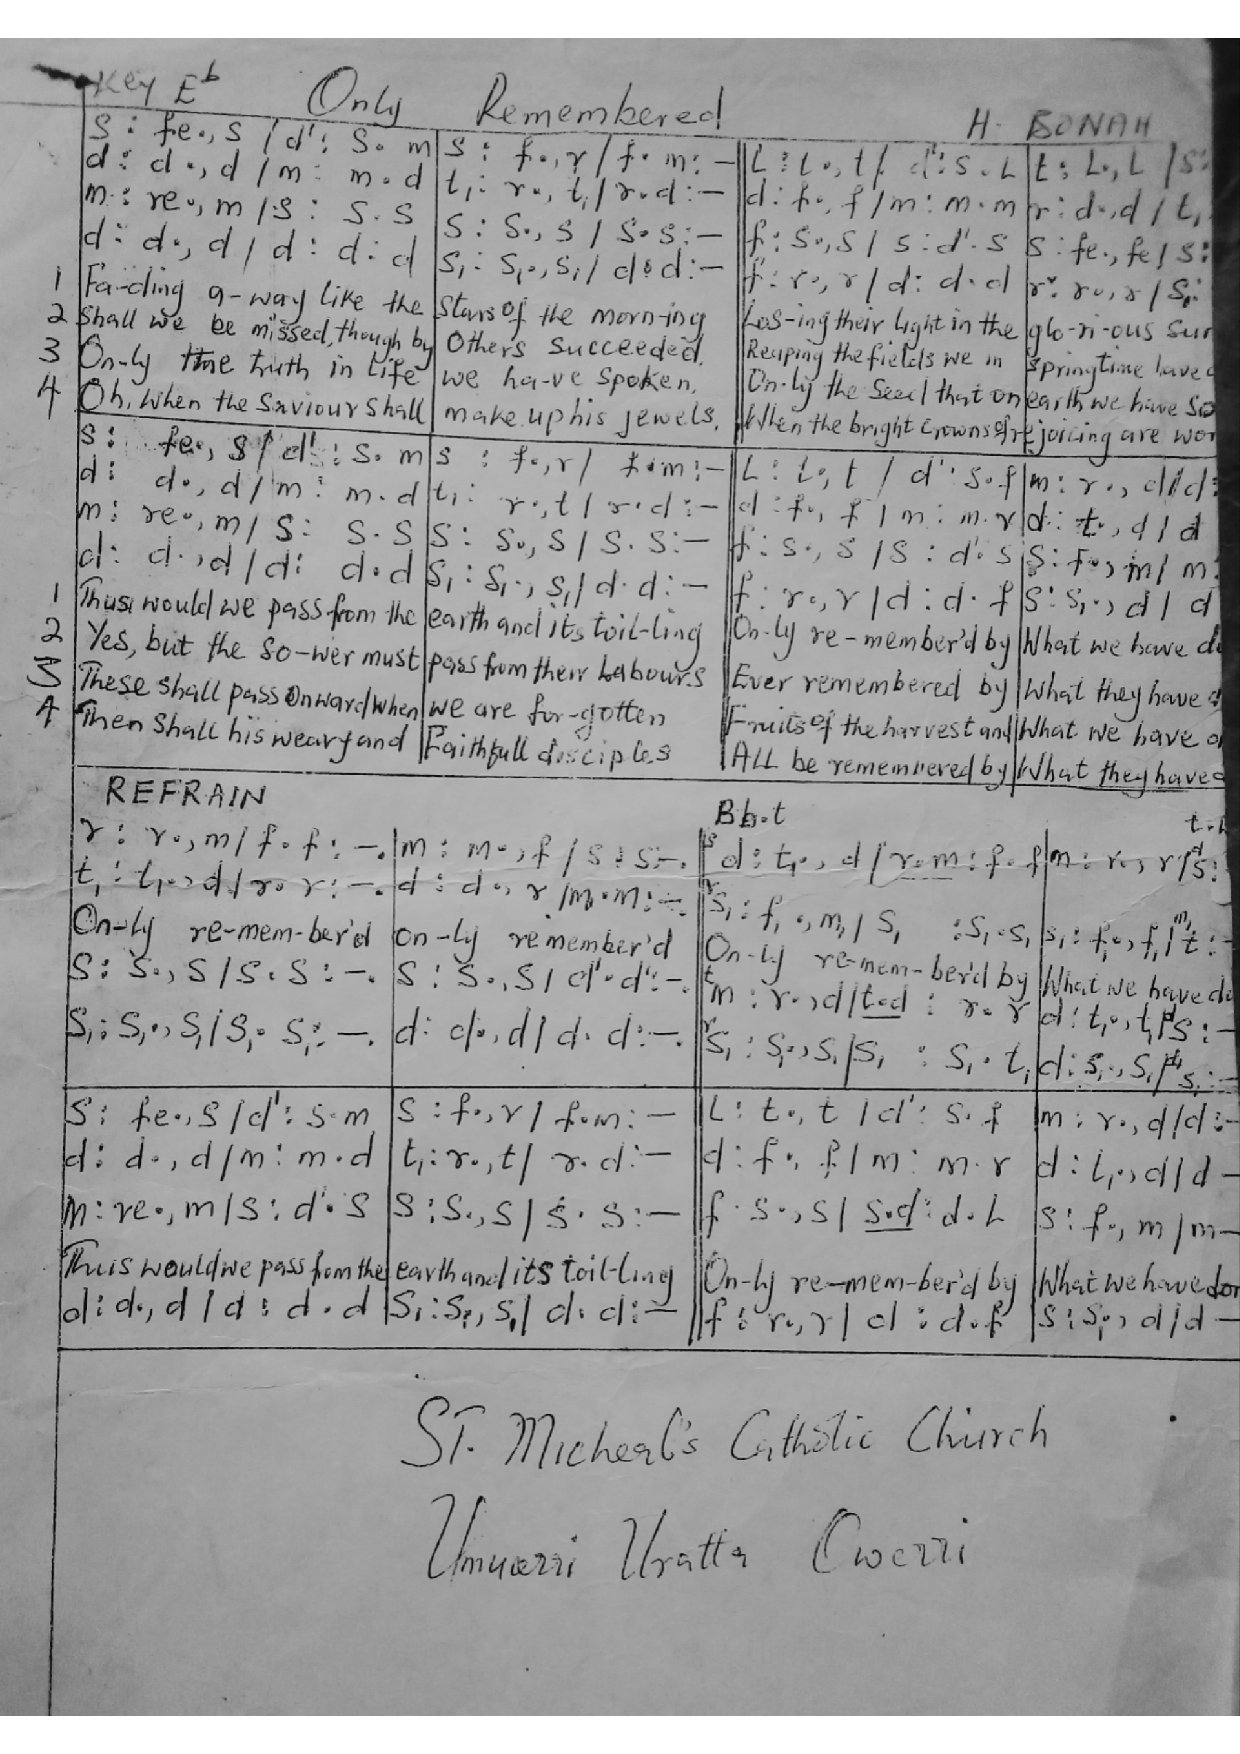 Key Eb Only Remembered H. BONAH
S : fe., s / d' : S. m | s : f., r / f. m : – || L : L., t / d' : s. L | t : L., L / s :
d : d., d / m : m. d | t₁ : r., t₁ / r. d : – || d : f., f / m : m. m | r : d., d / t₁
m : re., m / s : S. S | S : S., s / S. s : – || f : S., S / s : d'. s | S : fe., fe / s :
d : d., d / d : d : d | S₁ : S₁., S₁ / d : d : – || f : r., r / d : d. d | r : r., r / S₁ :
1 Fa-ding a-way like the | Stars of the morn-ing || Los-ing their light in the | glo-ri-ous sun
2 Shall we be missed, though by | Others succeeded. || Reaping the fields we in | springtime have
3 On-ly the truth in life | we ha-ve spoken, || On-ly the seed that on | earth we have so
4 Oh, when the Saviour shall | make up his jewels, || When the bright crowns of re | joicing are wor
s : fe., s / d' : s. m | s : f., r / f. m : – || L : L., t / d' : s. f | m : r., d / d :
d : d., d / m : m. d | t₁ : r., t / r. d : – || d : f., f / m : m. r | d : t., d / d
m : re., m / S : S. S | S : S., S / S. S : – || f : S., S / S : d'. s | S : f., m / m :
d : d., d / d : d. d | S₁ : S₁., S₁ / d. d : – || f : r., r / d : d. f | S : S₁., d / d
1 Thus would we pass from the | earth and its toil-ling || On-ly re-member'd by | What we have do
2 Yes, but the so-wer must | pass from their Labours || Ever remembered by | What they have
3 These shall pass onward when | we are for-gotten || Fruits of the harvest and | What we have
4 Then shall his weary and | Faithfull disciples || ALL be remembered by | What they have
REFRAIN
Bb.t t.
r : r., m / f. f : –. | m : m., f / s : s : –. || s d : t₁., d / r. m : f. f | m : r., r / s :
t₁ : t₁., d / r. r : –. | d : d., r / m. m : –. || r S₁ : f₁., m₁ / S₁ : S₁. S₁ | S₁ : f₁., f₁ / m₁ t : –
On-ly re-mem-ber'd | on-ly remember'd || On-ly re-mem-ber'd by | What we have do
S : S., S / S. S : –. | S : S., S / d'. d' : –. || t m : r., d / t. d : r. r | d : t₁., t₁ / S : –
S₁ : S₁., S₁ / S₁. S₁ : –. | d : d., d / d. d : –. || r S₁ : S₁., S₁ / S₁ : S₁. t₁ | d : S₁., S₁ / S₁ : –
S : fe., S / d' : s. m | S : f., r / f. m : – || L : t., t / d' : s. f | m : r., d / d : –
d : d., d / m : m. d | t₁ : r., t / r. d : – || d : f., f / m : m. r | d : t₁., d / d –
m : re., m / S : d'. S | S : S., S / S. S : – || f . S., S / S. d : d. L | S : f., m / m –
Thus would we pass from the | earth and its toil-ling || On-ly re-mem-ber'd by | What we have don
d : d., d / d : d. d | S₁ : S₁., S₁ / d. d : – || f : r., r / d : d. f | S : S₁., d / d –
ST. Micheal's Catholic Church
Umuorri Uratta Owerri